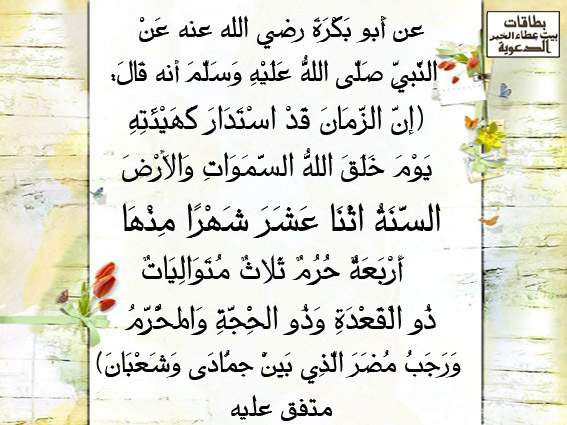 بطاقات
بيت عطاء الخير
الدعوية
عن أبو بَكْرَةَ رضي الله عنه عَنْ
النَّبِيِّ صَلَّى اللهُ عَلَيْهِ وَسَلَّمَ أنه قَالَ:
(إِنَّ الزَّمَانَ قَدْ اسْتَدَارَ كَهَيْئَتِهِ
يَوْمَ خَلَقَ اللهُ السَّمَوَاتِ وَالأَرْضَ
السَّنَةُ اثْنَا عَشَرَ شَهْرًا مِنْهَا
أَرْبَعَةٌ حُرُمٌ ثَلاثٌ مُتَوَالِيَاتٌ
ذُو الْقَعْدَةِ وَذُو الْحِجَّةِ وَالمُحَرَّمُ
وَرَجَبُ مُضَرَ الَّذِي بَيْنَ جمُادَى وَشَعْبَانَ)
متفق عليه